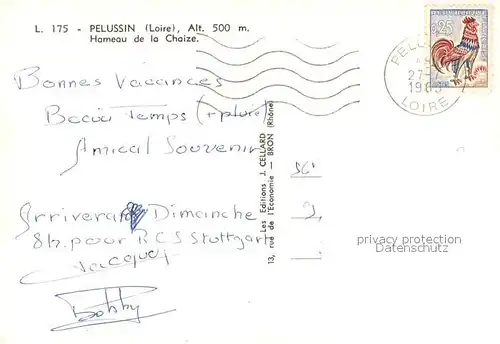 L. 175 - PELUSSIN (Loire), Alt. 500 m.
Hameau de la Chaize.
0,25
PELUSSIN
27-
196
LOIRE
Bonnes Vacances
Beau Temps (+ pluie)
Amical Souvenir
Arriverai Dimanche
8h. pour R C S Stuttgart
Jacques
Bobby
Les Editions J. CELLARD
13, rue de l'Economie — BRON (Rhône)
privacy protection
VENDOR